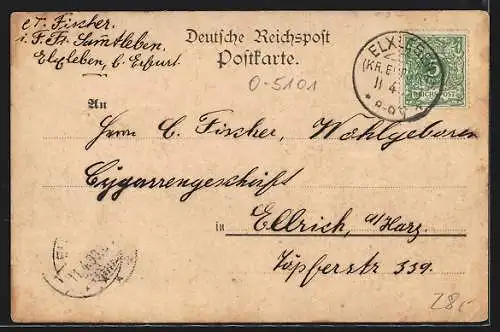 A. Fischer.
i. F. Fr. Samtleben.
Elxleben, b. Erfurt.
Deutsche Reichspost
Postkarte.
0-5101
ELXLEBEN
(KR. ERF
11 4
8-9
An
Herrn C. Fischer, Wohlgeboren
Cygarrengeschäft
in Ellrich, a/Harz.
Töpferstr 339.
28,-